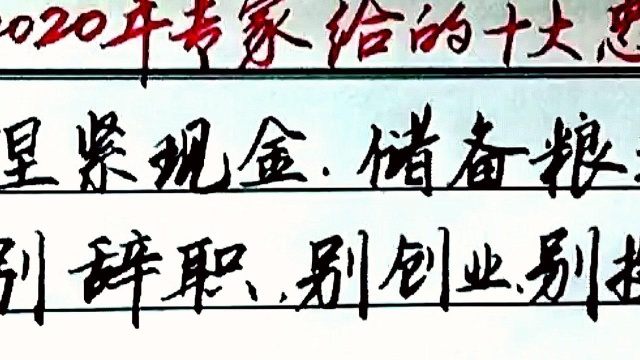 2020年专家给的十大忠
捏紧现金.储备粮
别辞职.别创业.别投